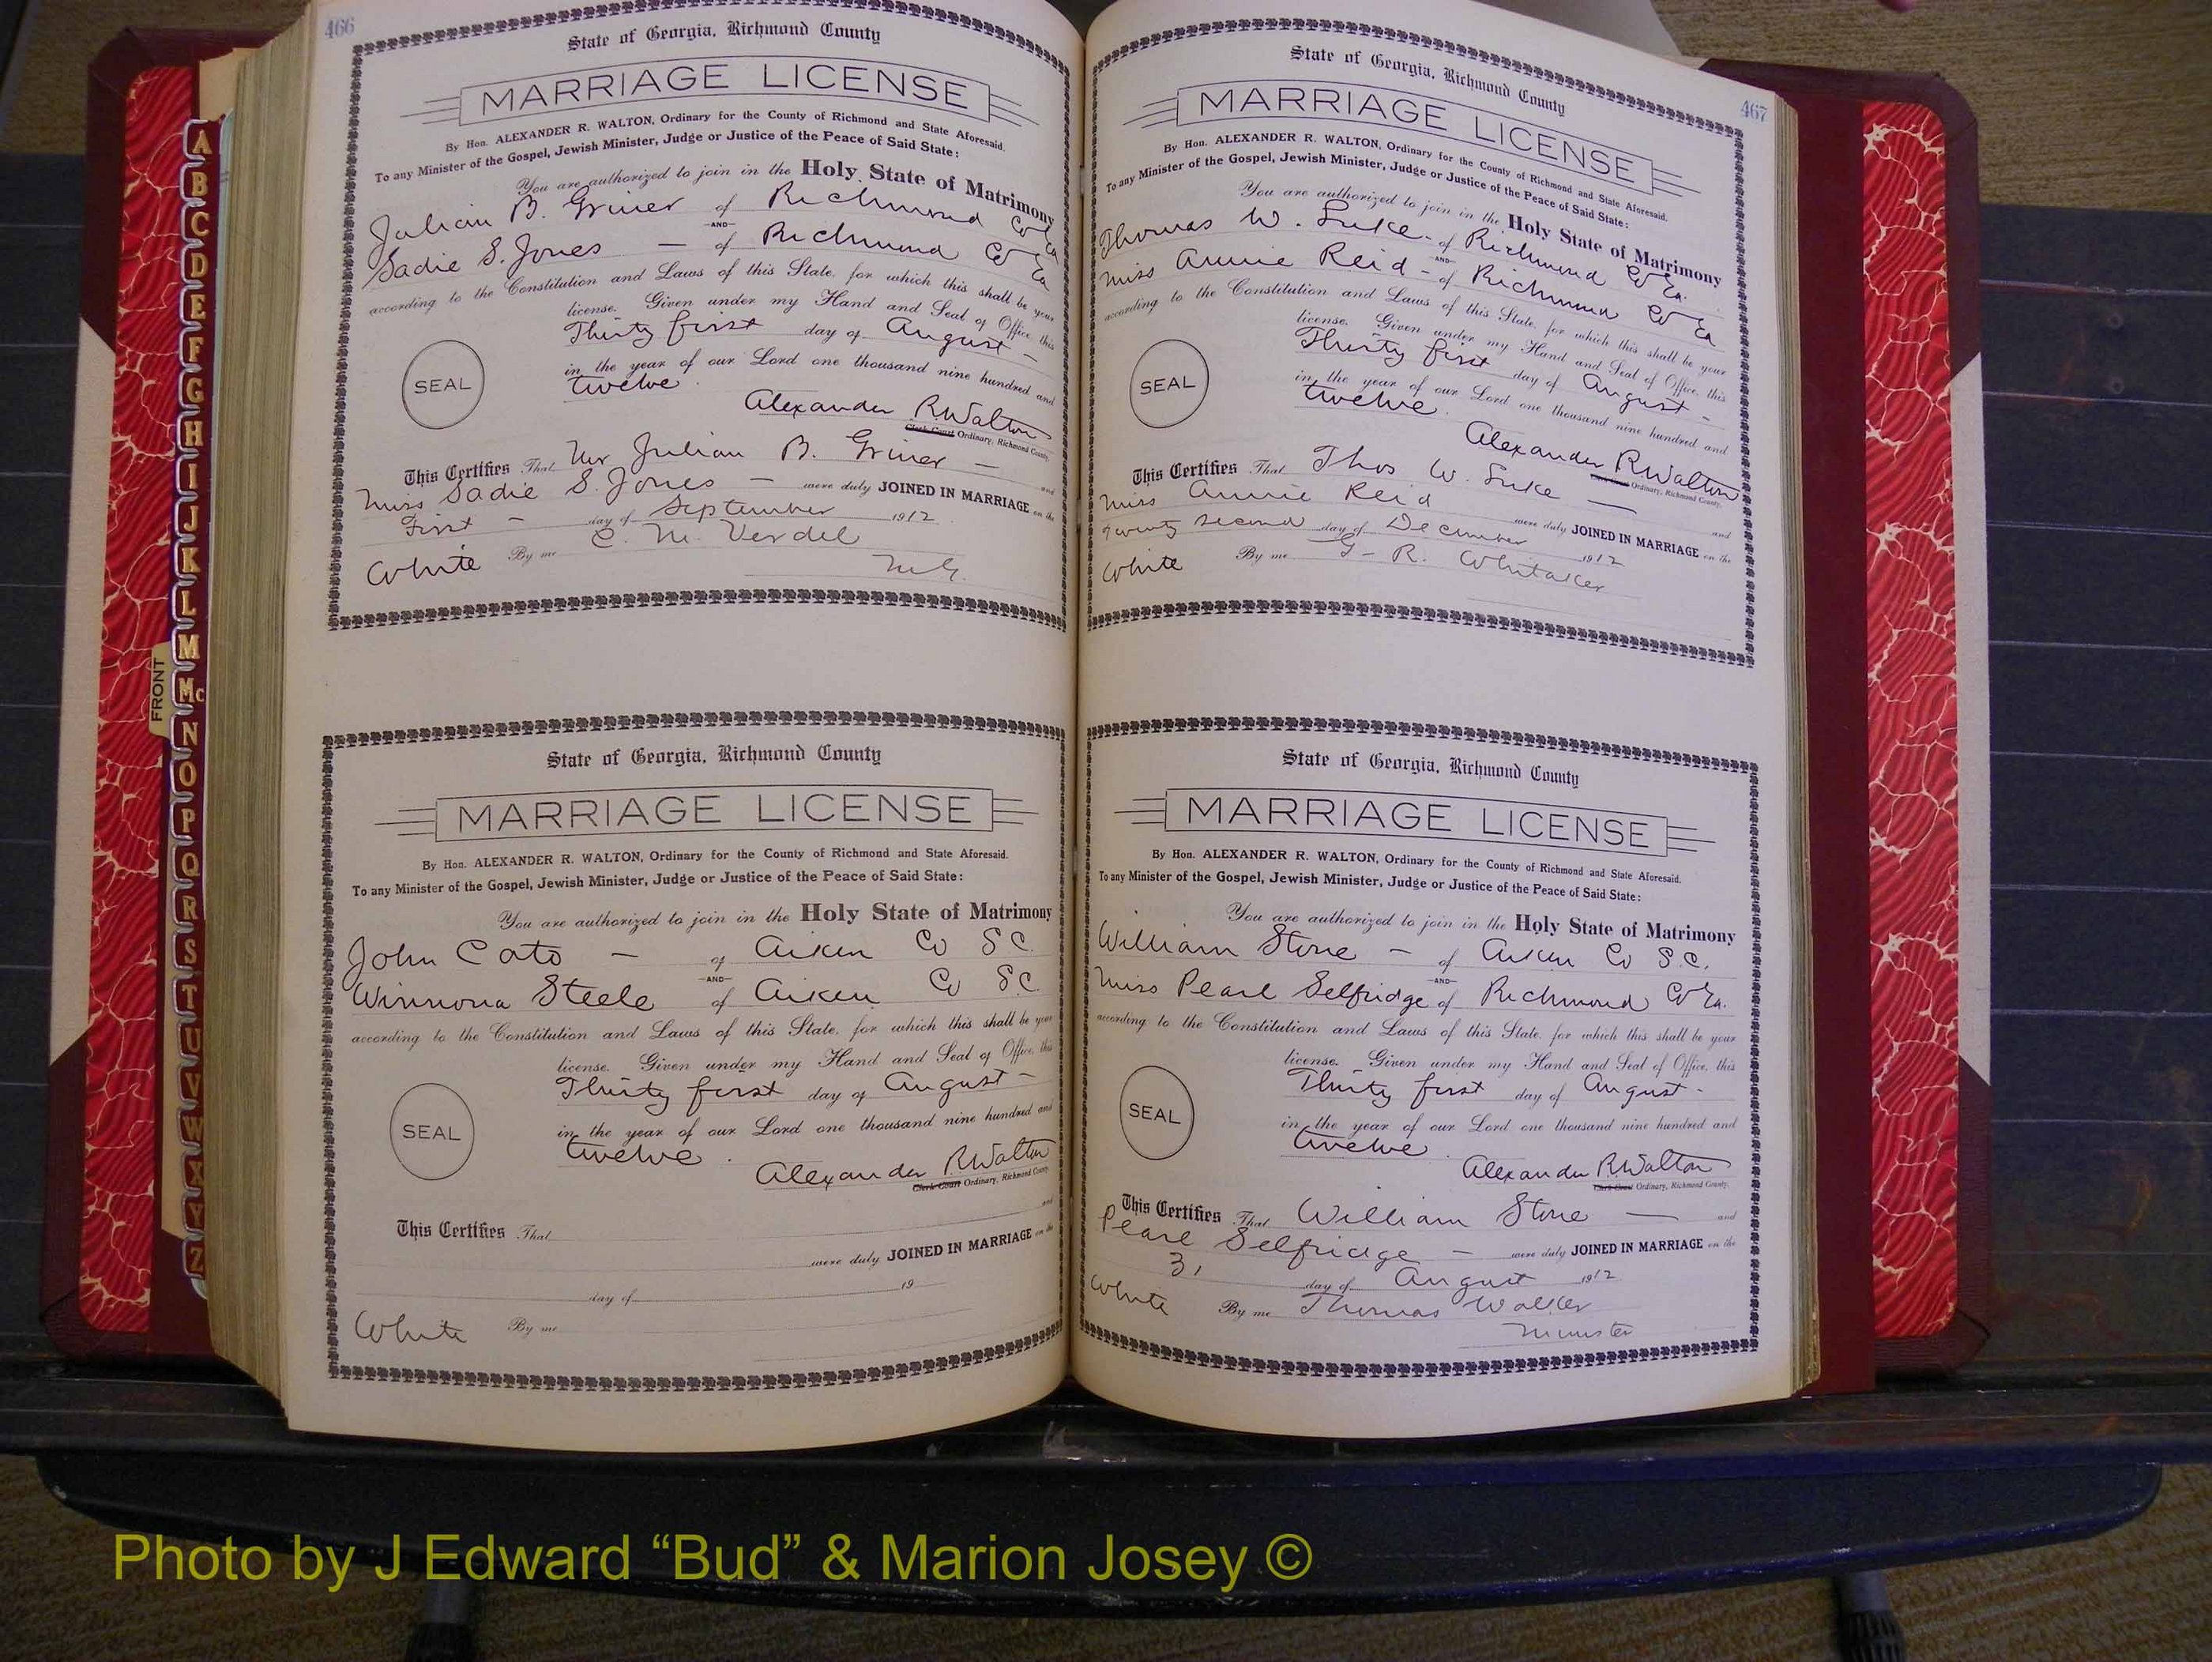 466
State of Georgia, Richmond County
MARRIAGE LICENSE
By Hon. ALEXANDER R. WALTON, Ordinary for the County of Richmond and State Aforesaid.
To any Minister of the Gospel, Jewish Minister, Judge or Justice of the Peace of Said State:
You are authorized to join in the Holy State of Matrimony
Julian B. Griner of Richmond Co Ga
AND
Sadie S. Jones — of Richmond Co Ga
according to the Constitution and Laws of this State, for which this shall be your
license. Given under my Hand and Seal of Office, this
Thirty first day of August –
in the year of our Lord one thousand nine hundred and
twelve.
SEAL
Alexander R Walton
Clerk Court Ordinary, Richmond County.
This Certifies That Mr Julian B. Griner – and
Miss Sadie S. Jones – were duly JOINED IN MARRIAGE on the
First – day of September 1912.
White By me C. M. Verdel
M.G.
State of Georgia, Richmond County
MARRIAGE LICENSE
By Hon. ALEXANDER R. WALTON, Ordinary for the County of Richmond and State Aforesaid.
To any Minister of the Gospel, Jewish Minister, Judge or Justice of the Peace of Said State:
You are authorized to join in the Holy State of Matrimony
John Cato – of Aiken Co S.C.
AND
Winnona Steele of Aiken Co S.C.
according to the Constitution and Laws of this State, for which this shall be your
license. Given under my Hand and Seal of Office, this
Thirty first day of August –
in the year of our Lord one thousand nine hundred and
twelve.
SEAL
Alexander R Walton
Clerk Court Ordinary, Richmond County.
This Certifies That and
were duly JOINED IN MARRIAGE on the
day of 19
White By me
467
State of Georgia, Richmond County
MARRIAGE LICENSE
By Hon. ALEXANDER R. WALTON, Ordinary for the County of Richmond and State Aforesaid.
To any Minister of the Gospel, Jewish Minister, Judge or Justice of the Peace of Said State:
You are authorized to join in the Holy State of Matrimony
Thomas W. Luke – of Richmond Co Ga.
AND
Miss Annie Reid – of Richmond Co Ga
according to the Constitution and Laws of this State, for which this shall be your
license. Given under my Hand and Seal of Office, this
Thirty first day of August –
in the year of our Lord one thousand nine hundred and
twelve.
SEAL
Alexander R Walton
Clerk Court Ordinary, Richmond County.
This Certifies That Thos W. Luke — and
Miss Annie Reid were duly JOINED IN MARRIAGE on the
Twenty second day of December 1912
White By me G. R. Whitaker
State of Georgia, Richmond County
MARRIAGE LICENSE
By Hon. ALEXANDER R. WALTON, Ordinary for the County of Richmond and State Aforesaid.
To any Minister of the Gospel, Jewish Minister, Judge or Justice of the Peace of Said State:
You are authorized to join in the Holy State of Matrimony
William Stone – of Aiken Co S.C.
AND
Miss Pearl Selfridge of Richmond Co Ga.
according to the Constitution and Laws of this State, for which this shall be your
license. Given under my Hand and Seal of Office, this
Thirty first day of August –
in the year of our Lord one thousand nine hundred and
twelve.
SEAL
Alexander R Walton
Clerk Court Ordinary, Richmond County.
This Certifies That William Stone — and
Pearl Selfridge – were duly JOINED IN MARRIAGE on the
31 day of August 1912
White By me Thomas Walker
Minister
FRONT
A
B
C
D
E
F
G
H
I
J
K
L
M
Mc
N
O
P
Q
R
S
T
U
V
W
X
Y
Z
Photo by J Edward “Bud” & Marion Josey ©